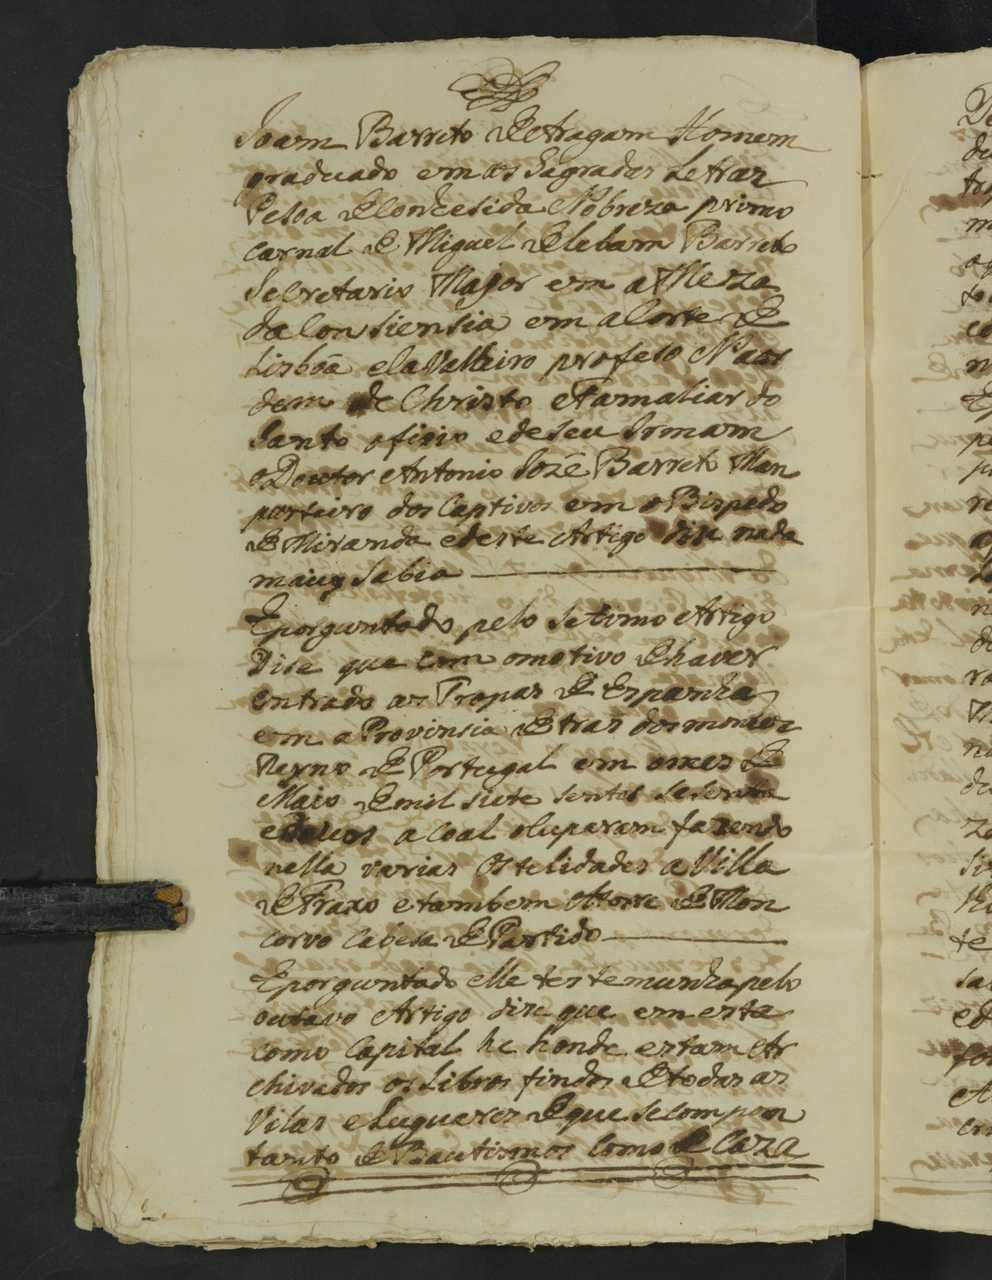 Joam Barreto de Aragam Homem
graduado em as Sagradas Letras
Pesoa de Conhesida Nobreza primo
carnal de Miguel Barreto
Secretario Major em a Meza
da Consiensia em a Corte de
Lisboa e Cavalheiro profeso Na or
dem de Christo e Famaliar do
Santo oficio e de seu Irmam
o Doutor Antonio Jozé Barreto Man
posteiro dos Captivos em o Bispado
de Miranda e deste Artigo dise nada
mais q sabia
E porguntado pelo setimo Artigo
Dise que com o motivo de haver
entrado as Tropas de Espanha
em a Provinsia de tras dos montes
Reyno de Portugal em o mes de
Maio de mil siete sentos sesenta
e doios a coal ocuparam fazendo
nella varias Ostelidades a Villa
de Fraxo e tambem A torre de Mon
corvo Cabesa de Partido
E porguntado elle testemunha pelo
outavo Artigo dise que em esta
como Capital he honde estam Ar
chivados os Libros findos de todas as
Vilas e Luguares de que se compom
tanto de Bautismos como de Caza